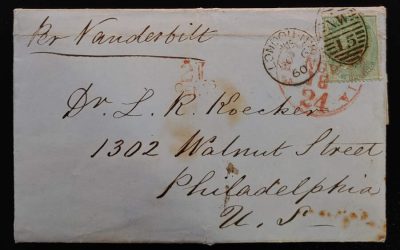 Per Vanderbilt
N.W.
15
LONDON
60
24
Dr. L. R. Koecker
1302 Walnut Street
Philadelphia
U. S